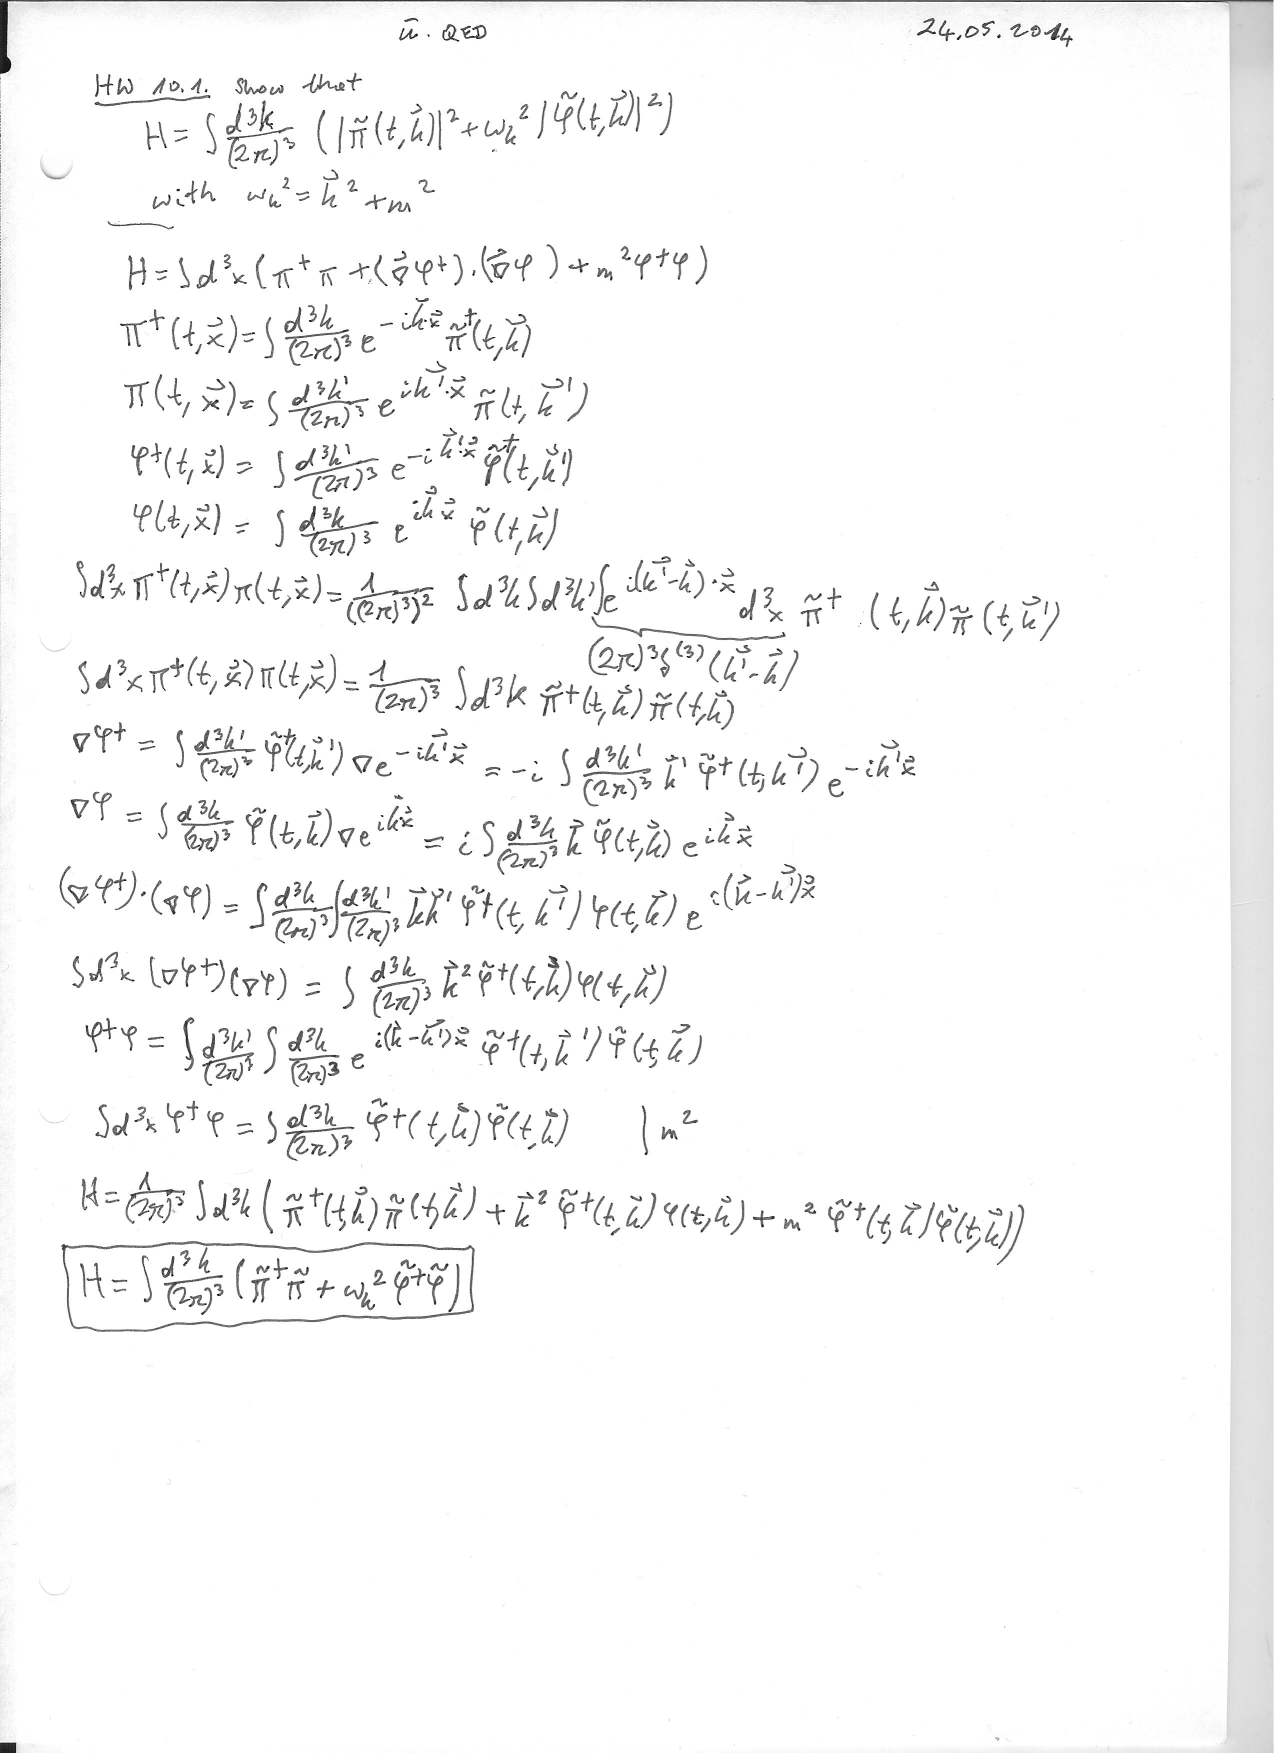 ü. QED 24.05.2014
HW 10.1. show that
H = ∫ d³k/(2π)³ (|π̃(t,k⃗)|² + ω_k² |φ̃(t,k⃗)|²)
with ω_k² = k⃗² + m²
H = ∫d³x (π⁺π + (∇⃗φ⁺)·(∇⃗φ) + m²φ⁺φ)
π⁺(t,x⃗) = ∫ d³k/(2π)³ e^{-ik⃗·x⃗} π̃⁺(t,k⃗)
π(t,x⃗) = ∫ d³k'/(2π)³ e^{ik⃗'·x⃗} π̃(t,k⃗')
φ⁺(t,x⃗) = ∫ d³k'/(2π)³ e^{-ik⃗'·x⃗} φ̃⁺(t,k⃗')
φ(t,x⃗) = ∫ d³k/(2π)³ e^{ik⃗x⃗} φ̃(t,k⃗)
∫d³x π⁺(t,x⃗)π(t,x⃗) = 1/((2π)³)² ∫d³k∫d³k'∫e^{i(k⃗'-k⃗)·x⃗} d³x π̃⁺(t,k⃗)π̃(t,k⃗')
(2π)³δ⁽³⁾(k⃗'-k⃗)
∫d³x π⁺(t,x⃗)π(t,x⃗) = 1/(2π)³ ∫d³k π̃⁺(t,k⃗)π̃(t,k⃗)
∇φ⁺ = ∫ d³k'/(2π)³ φ̃⁺(t,k⃗')∇e^{-ik⃗'x⃗} = -i ∫ d³k'/(2π)³ k⃗' φ̃⁺(t,k⃗') e^{-ik⃗'x⃗}
∇φ = ∫ d³k/(2π)³ φ̃(t,k⃗)∇e^{ik⃗x⃗} = i ∫ d³k/(2π)³ k⃗ φ̃(t,k⃗) e^{ik⃗x⃗}
(∇φ⁺)·(∇φ) = ∫ d³k/(2π)³ ∫ d³k'/(2π)³ k⃗k⃗' φ̃⁺(t,k⃗')φ(t,k⃗) e^{i(k⃗-k⃗')x⃗}
∫d³x (∇φ⁺)(∇φ) = ∫ d³k/(2π)³ k⃗² φ̃⁺(t,k⃗)φ(t,k⃗)
φ⁺φ = ∫ d³k'/(2π)³ ∫ d³k/(2π)³ e^{i(k⃗-k⃗')x⃗} φ̃⁺(t,k⃗')φ̃(t,k⃗)
∫d³x φ⁺φ = ∫ d³k/(2π)³ φ̃⁺(t,k⃗)φ̃(t,k⃗) | m²
H = 1/(2π)³ ∫d³k (π̃⁺(t,k⃗)π̃(t,k⃗) + k⃗² φ̃⁺(t,k⃗)φ(t,k⃗) + m² φ̃⁺(t,k⃗)φ̃(t,k⃗))
H = ∫ d³k/(2π)³ (π̃⁺π̃ + ω_k² φ̃⁺φ̃)